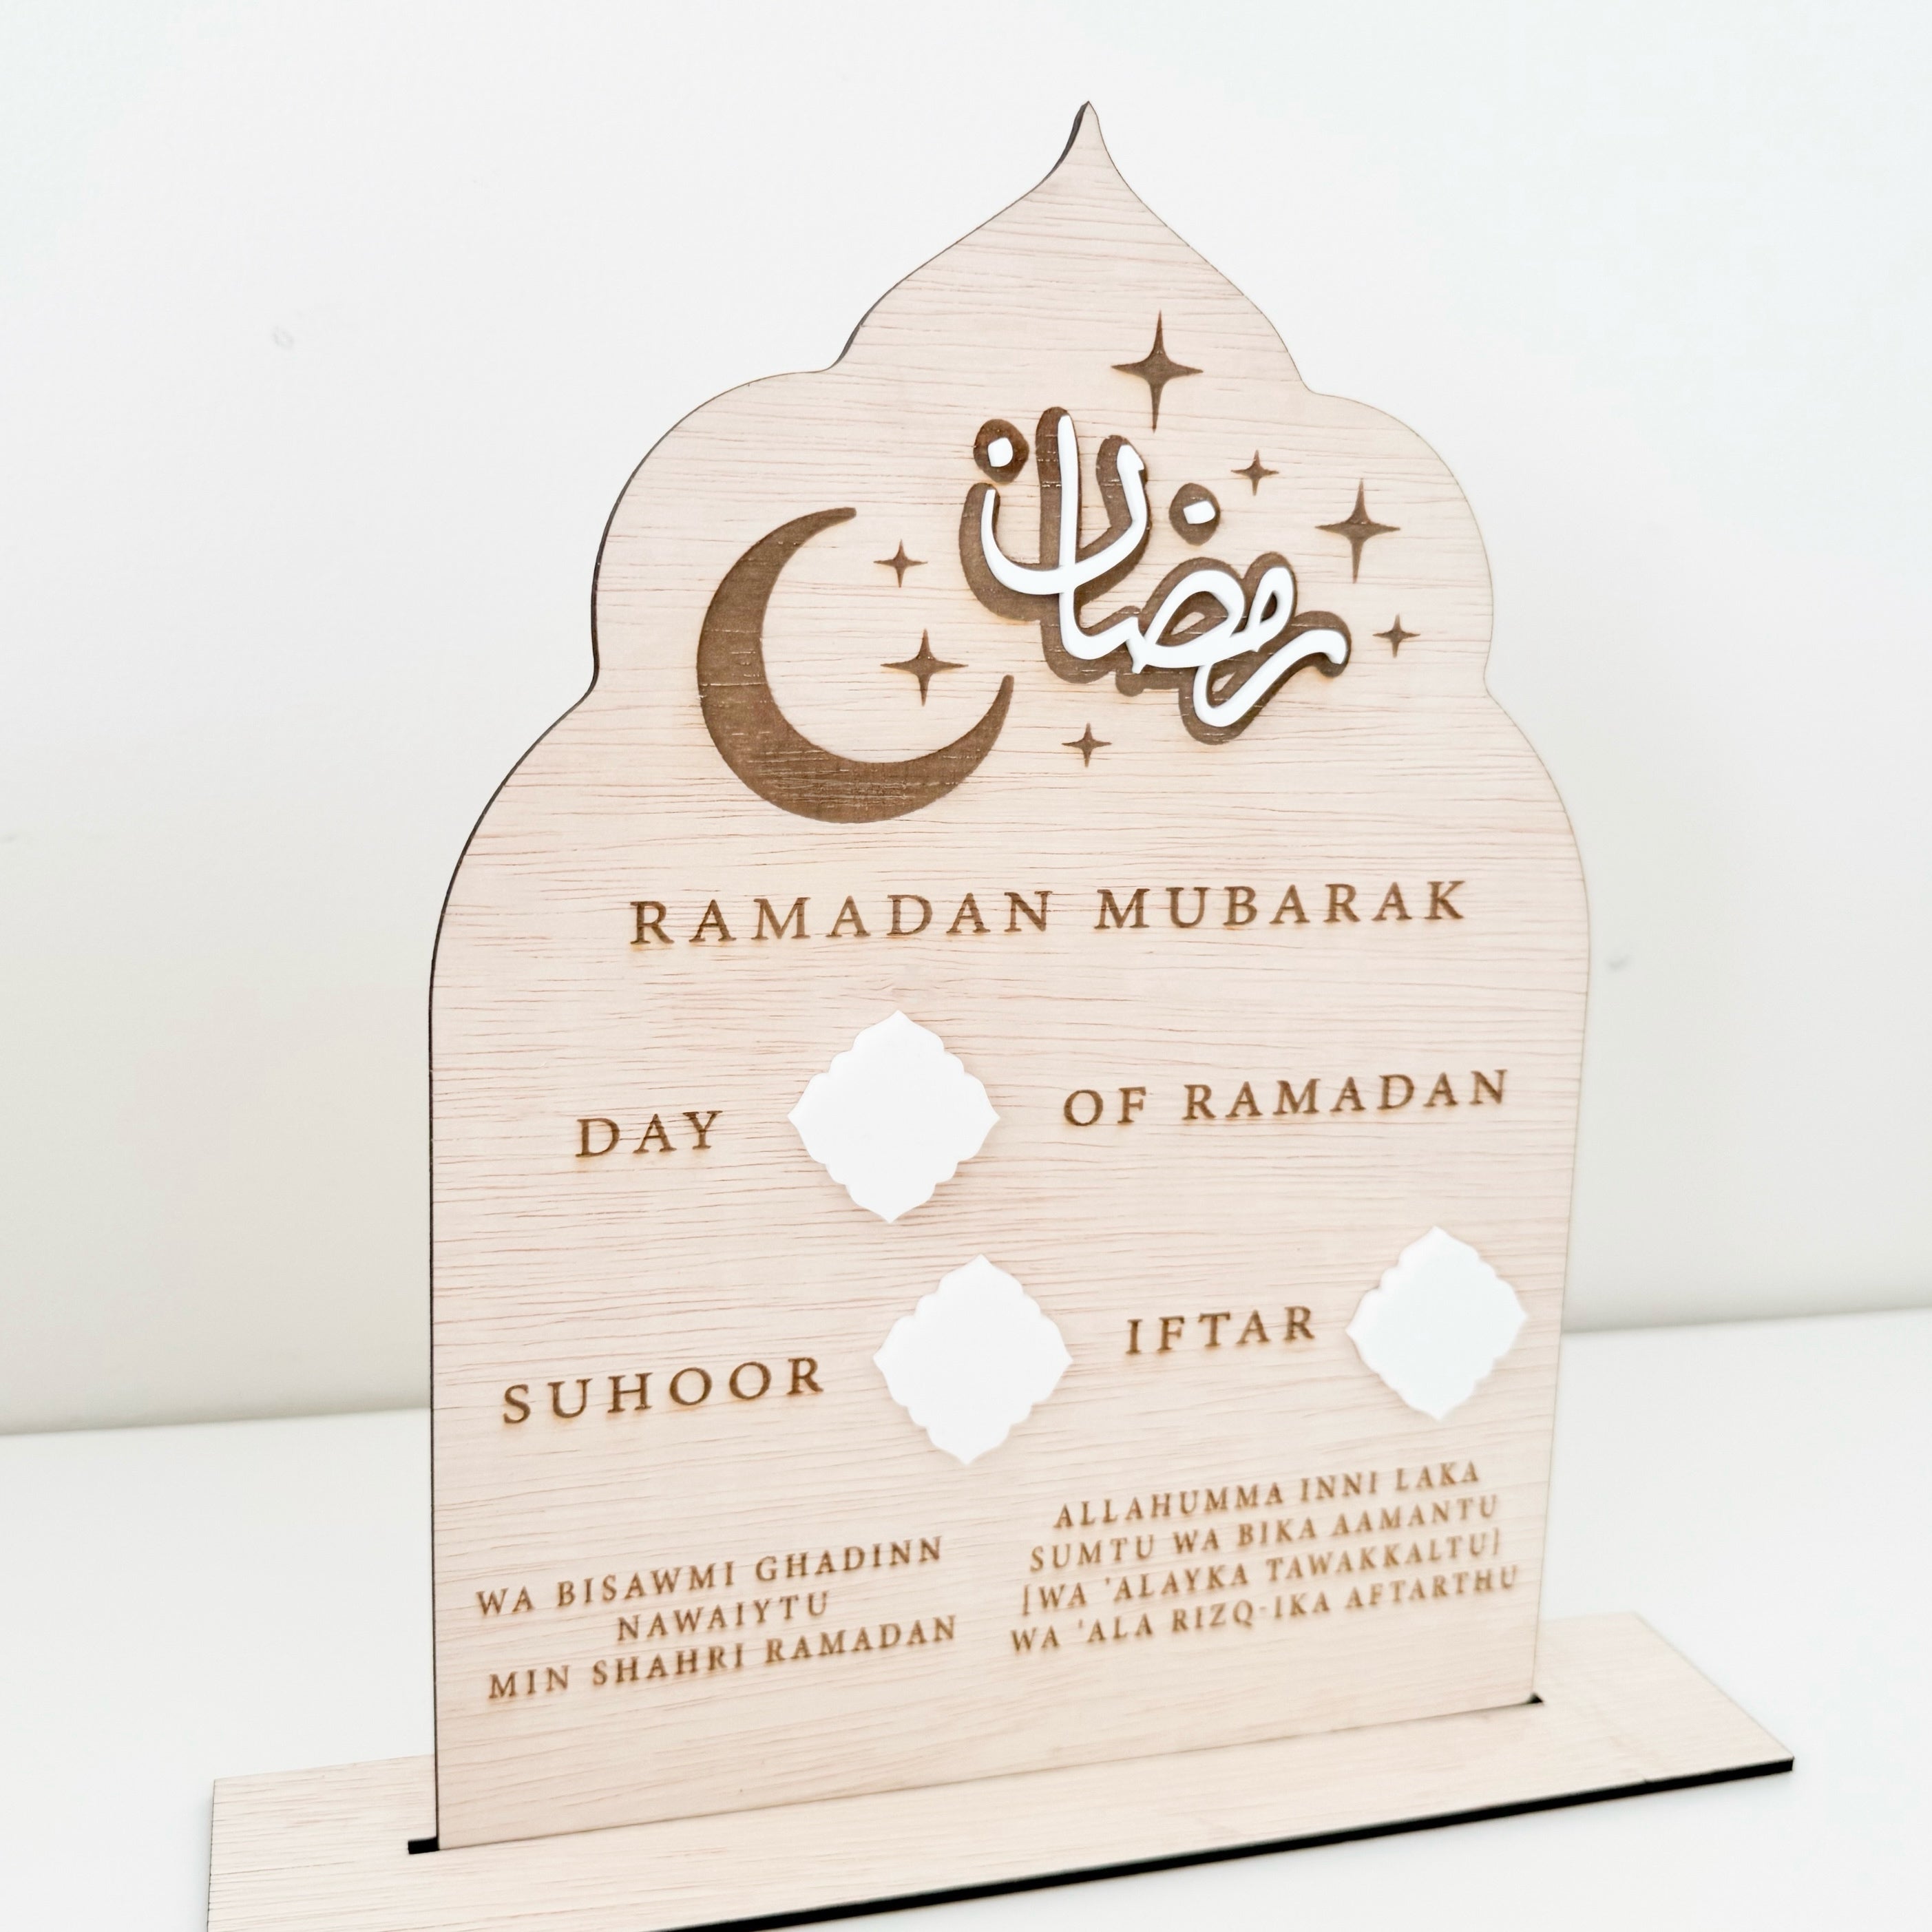 رمضان
RAMADAN MUBARAK
DAY OF RAMADAN
SUHOOR
IFTAR
WA BISAWMI GHADINN
NAWAIYTU
MIN SHAHRI RAMADAN
ALLAHUMMA INNI LAKA
SUMTU WA BIKA AAMANTU
[WA 'ALAYKA TAWAKKALTU]
WA 'ALA RIZQ-IKA AFTARTHU